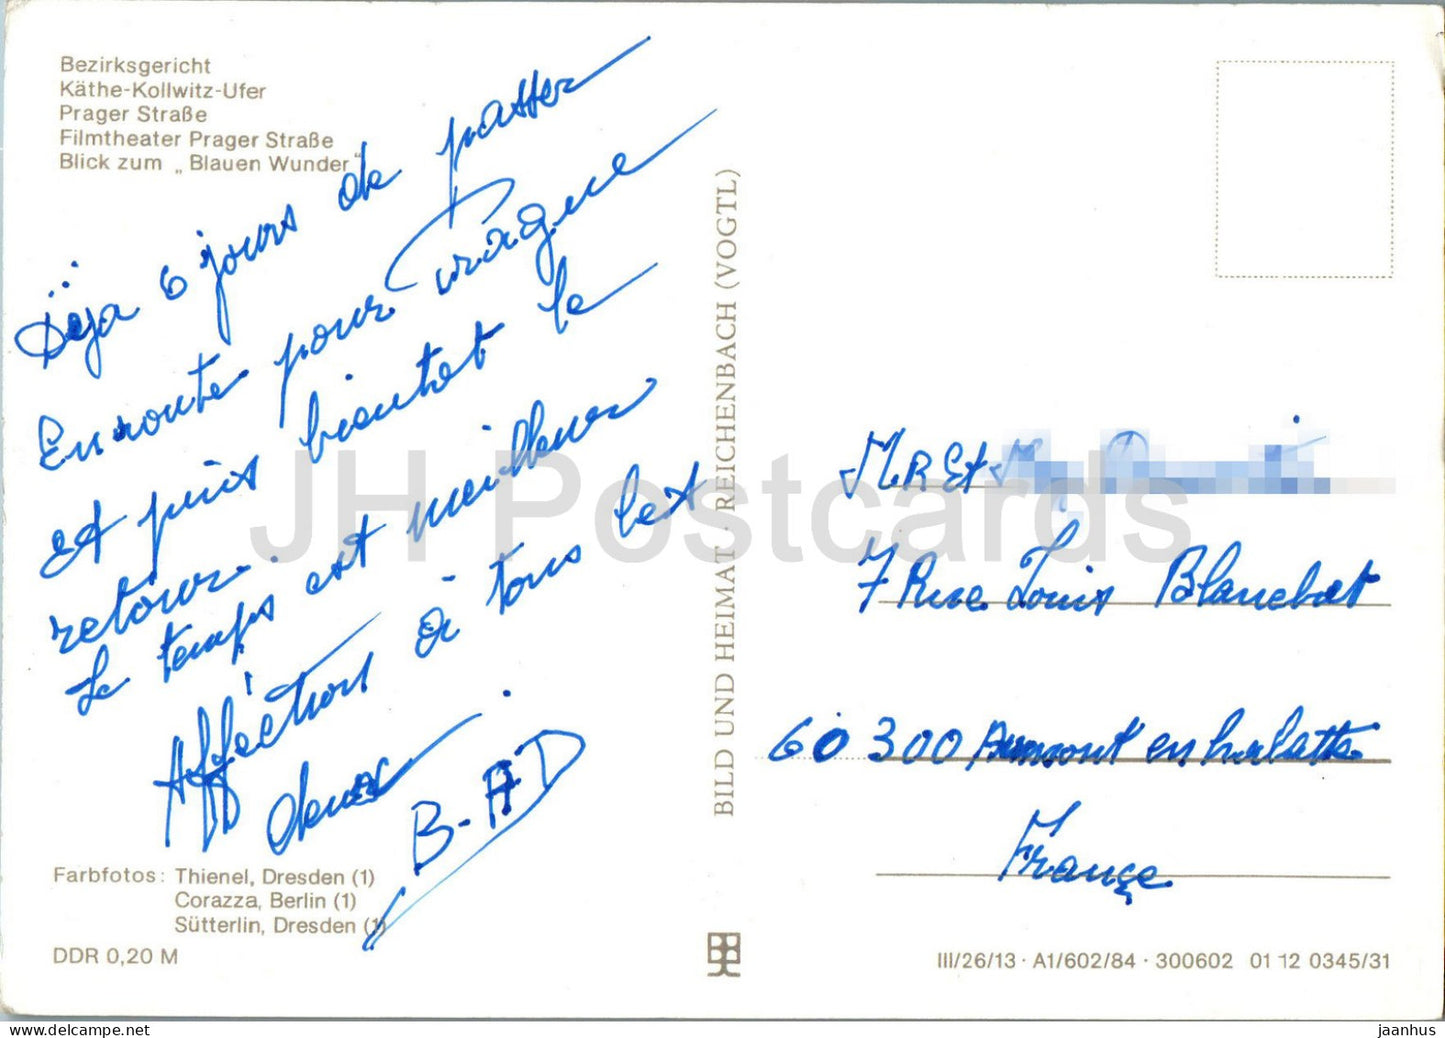 Bezirksgericht
Käthe-Kollwitz-Ufer
Prager Straße
Filmtheater Prager Straße
Blick zum „Blauen Wunder"
Déja 6 jours de passer
En route pour Prague
et puis bientot le
retour.
Le temps est meilleur
Afféction à tous les
deux.
B-AD
Farbfotos: Thienel, Dresden (1)
Corazza, Berlin (1)
Sütterlin, Dresden (1)
DDR 0,20 M
BILD UND HEIMAT / REICHENBACH (VOGTL)
MR Et
7 Rue Louis Blanchet
60 300 Aumont en halatte
Françe
III/26/13 · A1/602/84 · 300602 01 12 0345/31
JH Postcards
http://www.delcampe.net
jaanhus